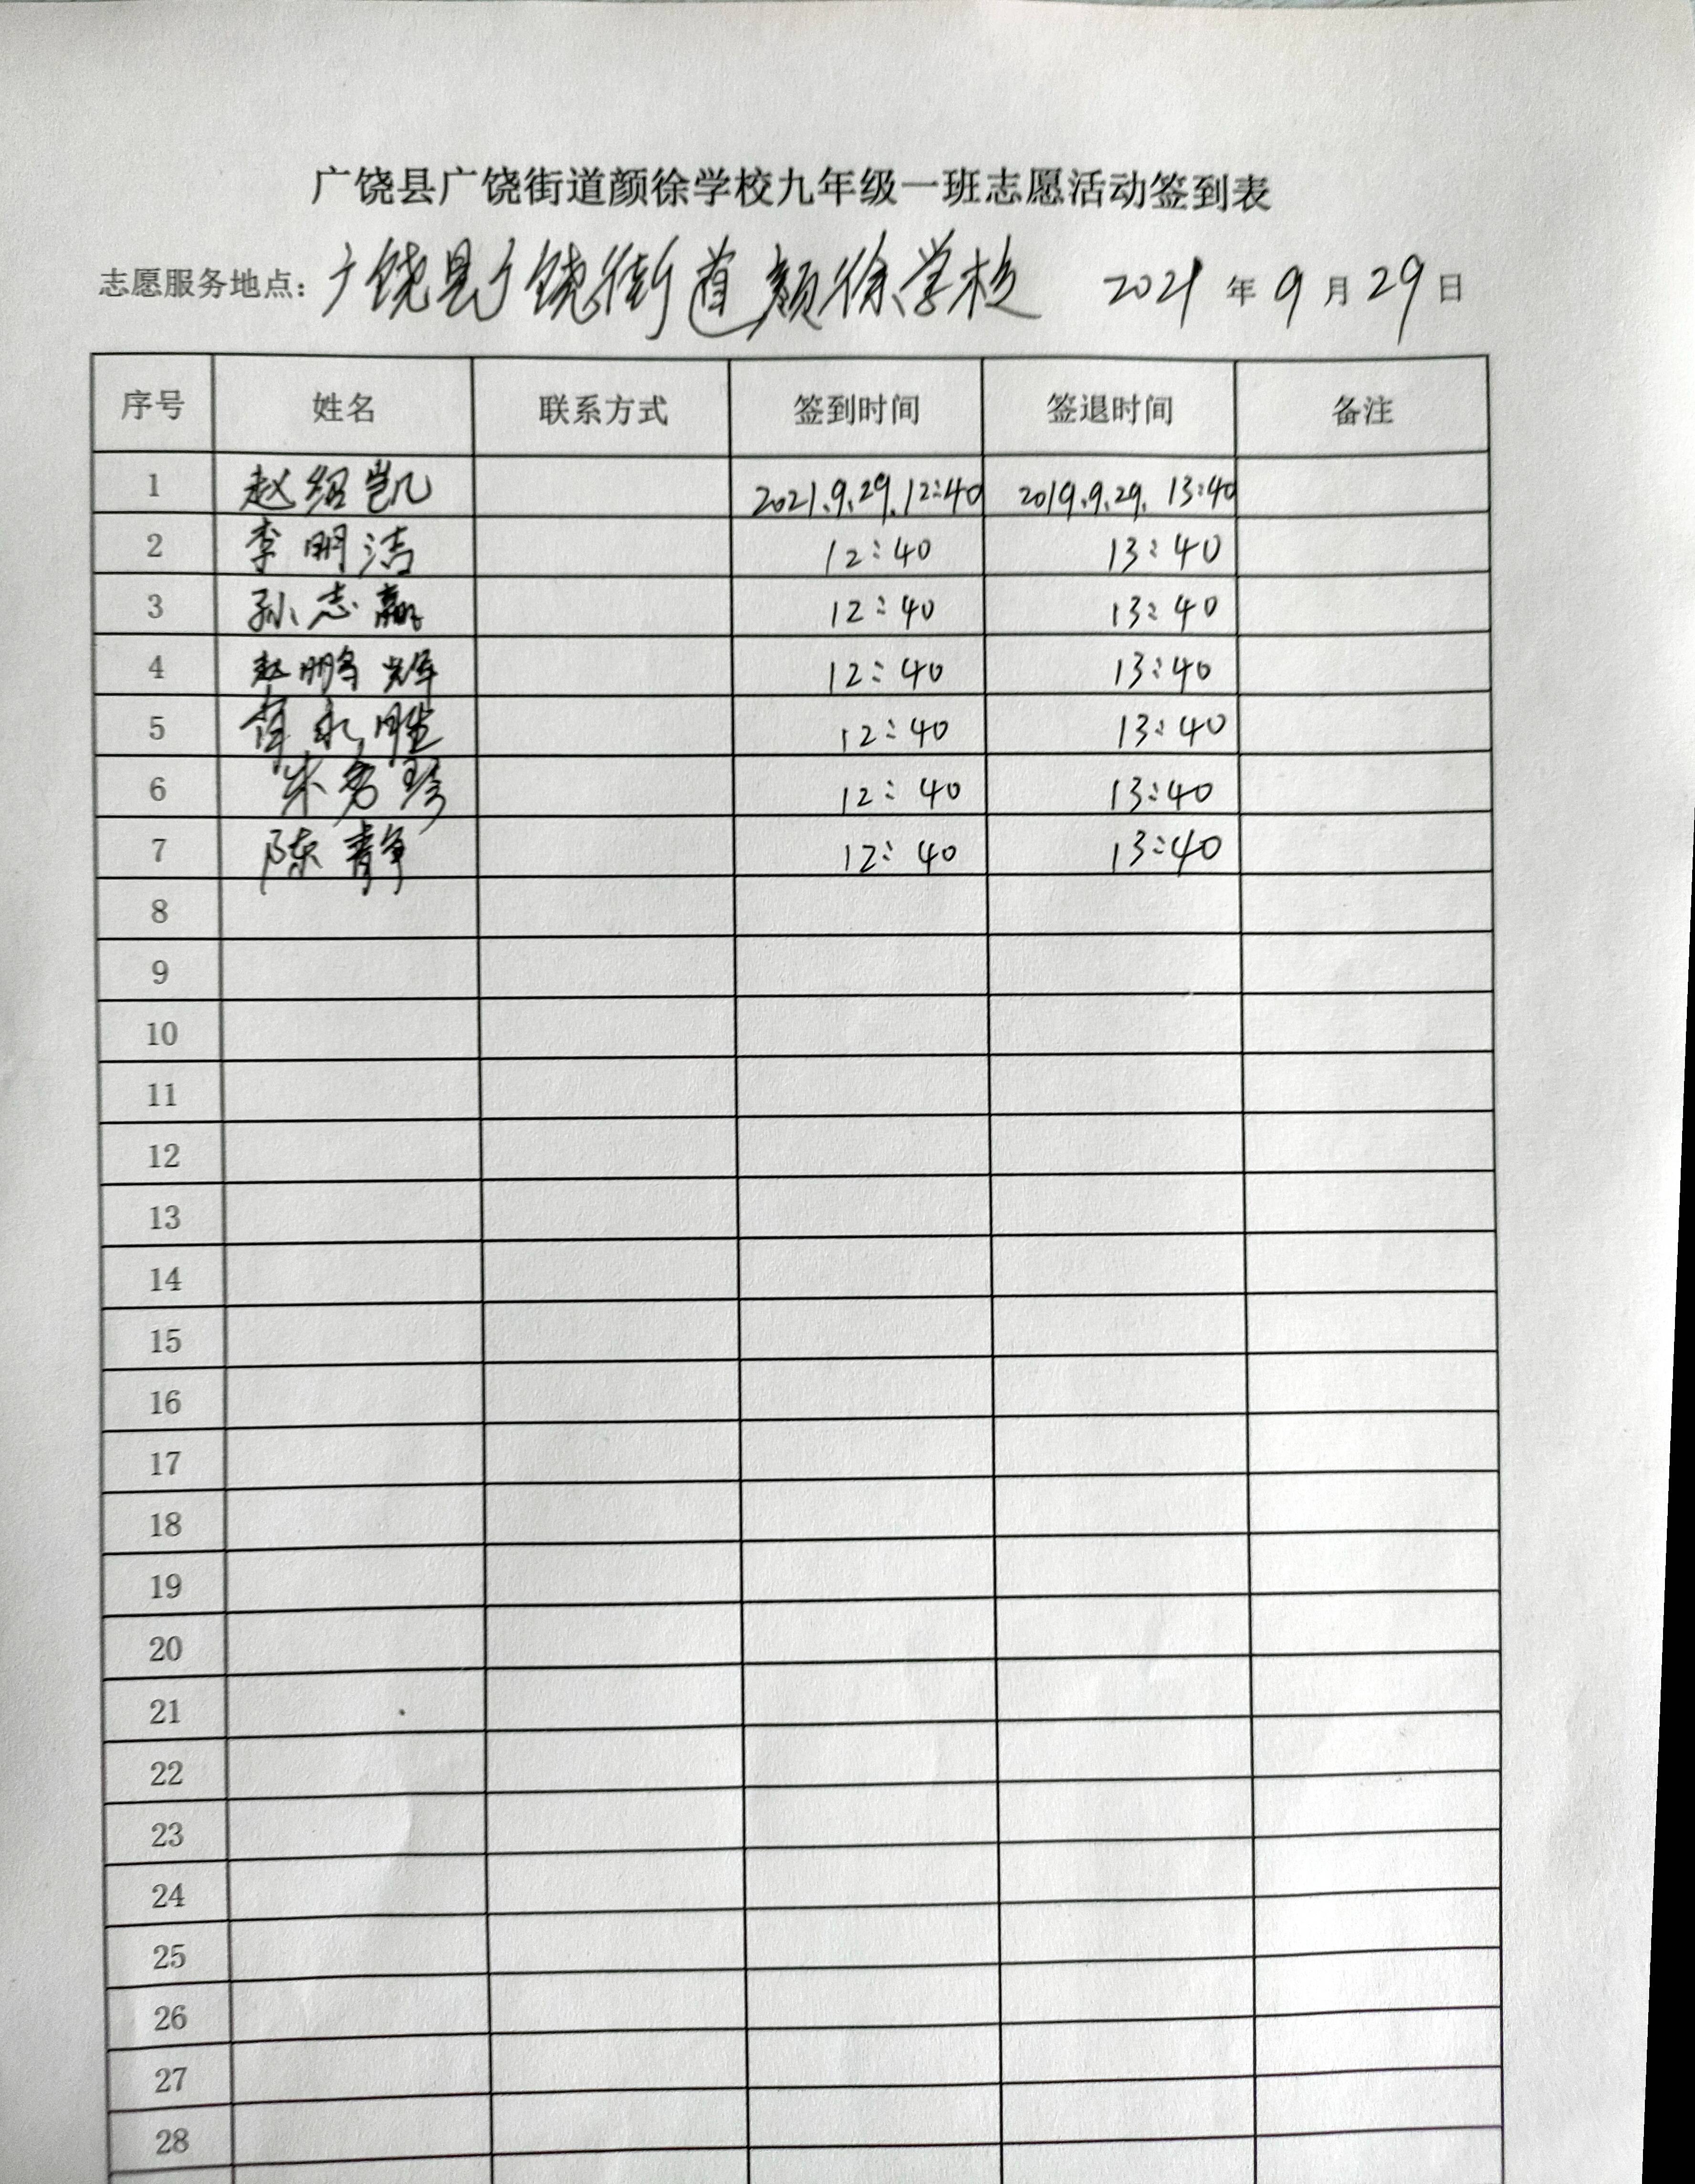 广饶县广饶街道颜徐学校九年级一班志愿活动签到表
志愿服务地点：广饶县广饶街道颜徐学校 2021 年 9 月 29 日
序号 姓名 联系方式 签到时间 签退时间 备注
1 赵绍凯 2021.9.29.12:40 2019.9.29. 13:40
2 李明洁 12:40 13:40
3 孙志赢 12:40 13:40
4 赵鹏辉 12:40 13:40
5 永胜 12:40 13:40
6 12:40 13:40
7 陈静 12:40 13:40
8
9
10
11
12
13
14
15
16
17
18
19
20
21
22
23
24
25
26
27
28